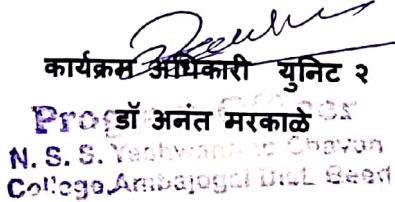 कार्यक्रम अधिकारी युनिट २
डॉ अनंत मरकाळे
N. S. S. Yeshwantrao Chavan
College, Ambajogai Dist. Beed